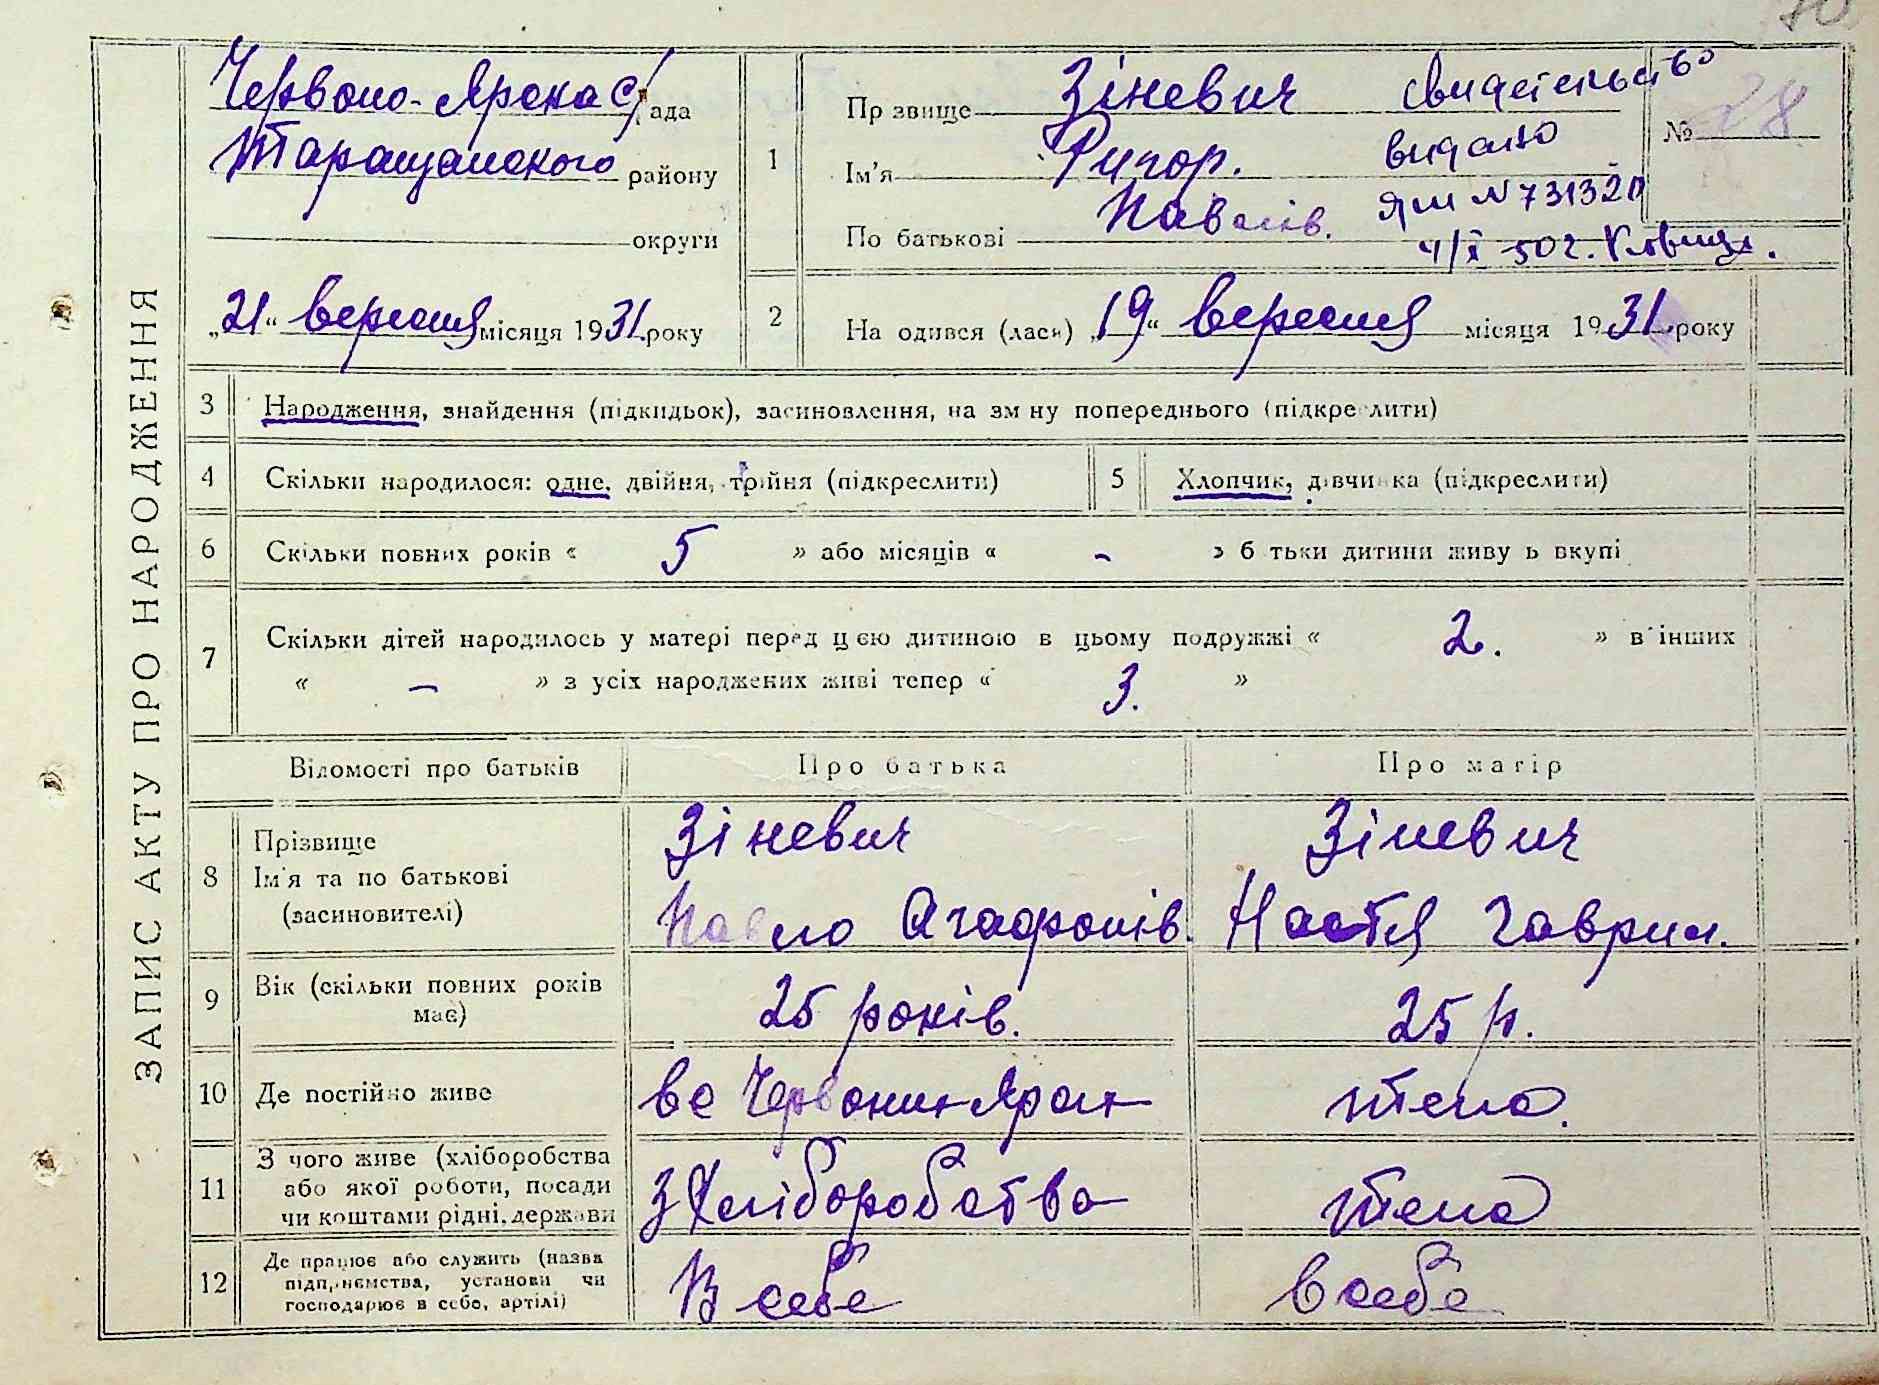 70
ЗАПИС АКТУ ПРО НАРОДЖЕННЯ
Червоно-Ярська с/рада
Таращанського району
округи
„21“ вересня місяця 1931 року
1
Пр звище Зіневич
Ім'я Григор.
По батькові Павлів.
свидетельство
видано
ЯШ № 731320
4/X 50 г.
№ 28
2
На одився (лася) „19“ вересня місяця 1931 року
3 Народження, знайдення (підкидьок), засиновлення, на зм ну попереднього (підкреслити)
4 Скільки народилося: одне, двійня, трійня (підкреслити)
5 Хлопчик, дівчинка (підкреслити)
6 Скільки повних років « 5 » або місяців « - » б тьки дитини живу ь вкупі
7 Скільки дітей народилось у матері перед цією дитиною в цьому подружжі « 2. » в інших
« — » з усіх народжених живі тепер « 3. »
Відомості про батьків Про батька Про матір
8 Прізвище
Ім'я та по батькові
(засиновителі)
Зіневич
Павло Агафонів.
Зіневич
Настя Гаврил.
9 Вік (скільки повних років
має)
25 років.
25 р.
10 Де постійно живе
в с Червоний Яр
тена.
11 З чого живе (хліборобства
або якої роботи, посади
чи коштами рідні, держави
з Хліборобства
тена
12 Де працює або служить (назва
підприємства, установи чи
господарює в себе, артілі)
В себе
в себе